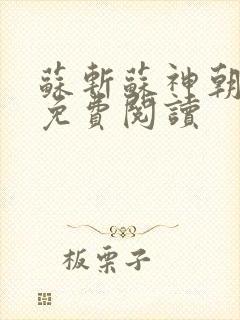 蘇斬蘇神朝
免費閱讀
板栗子